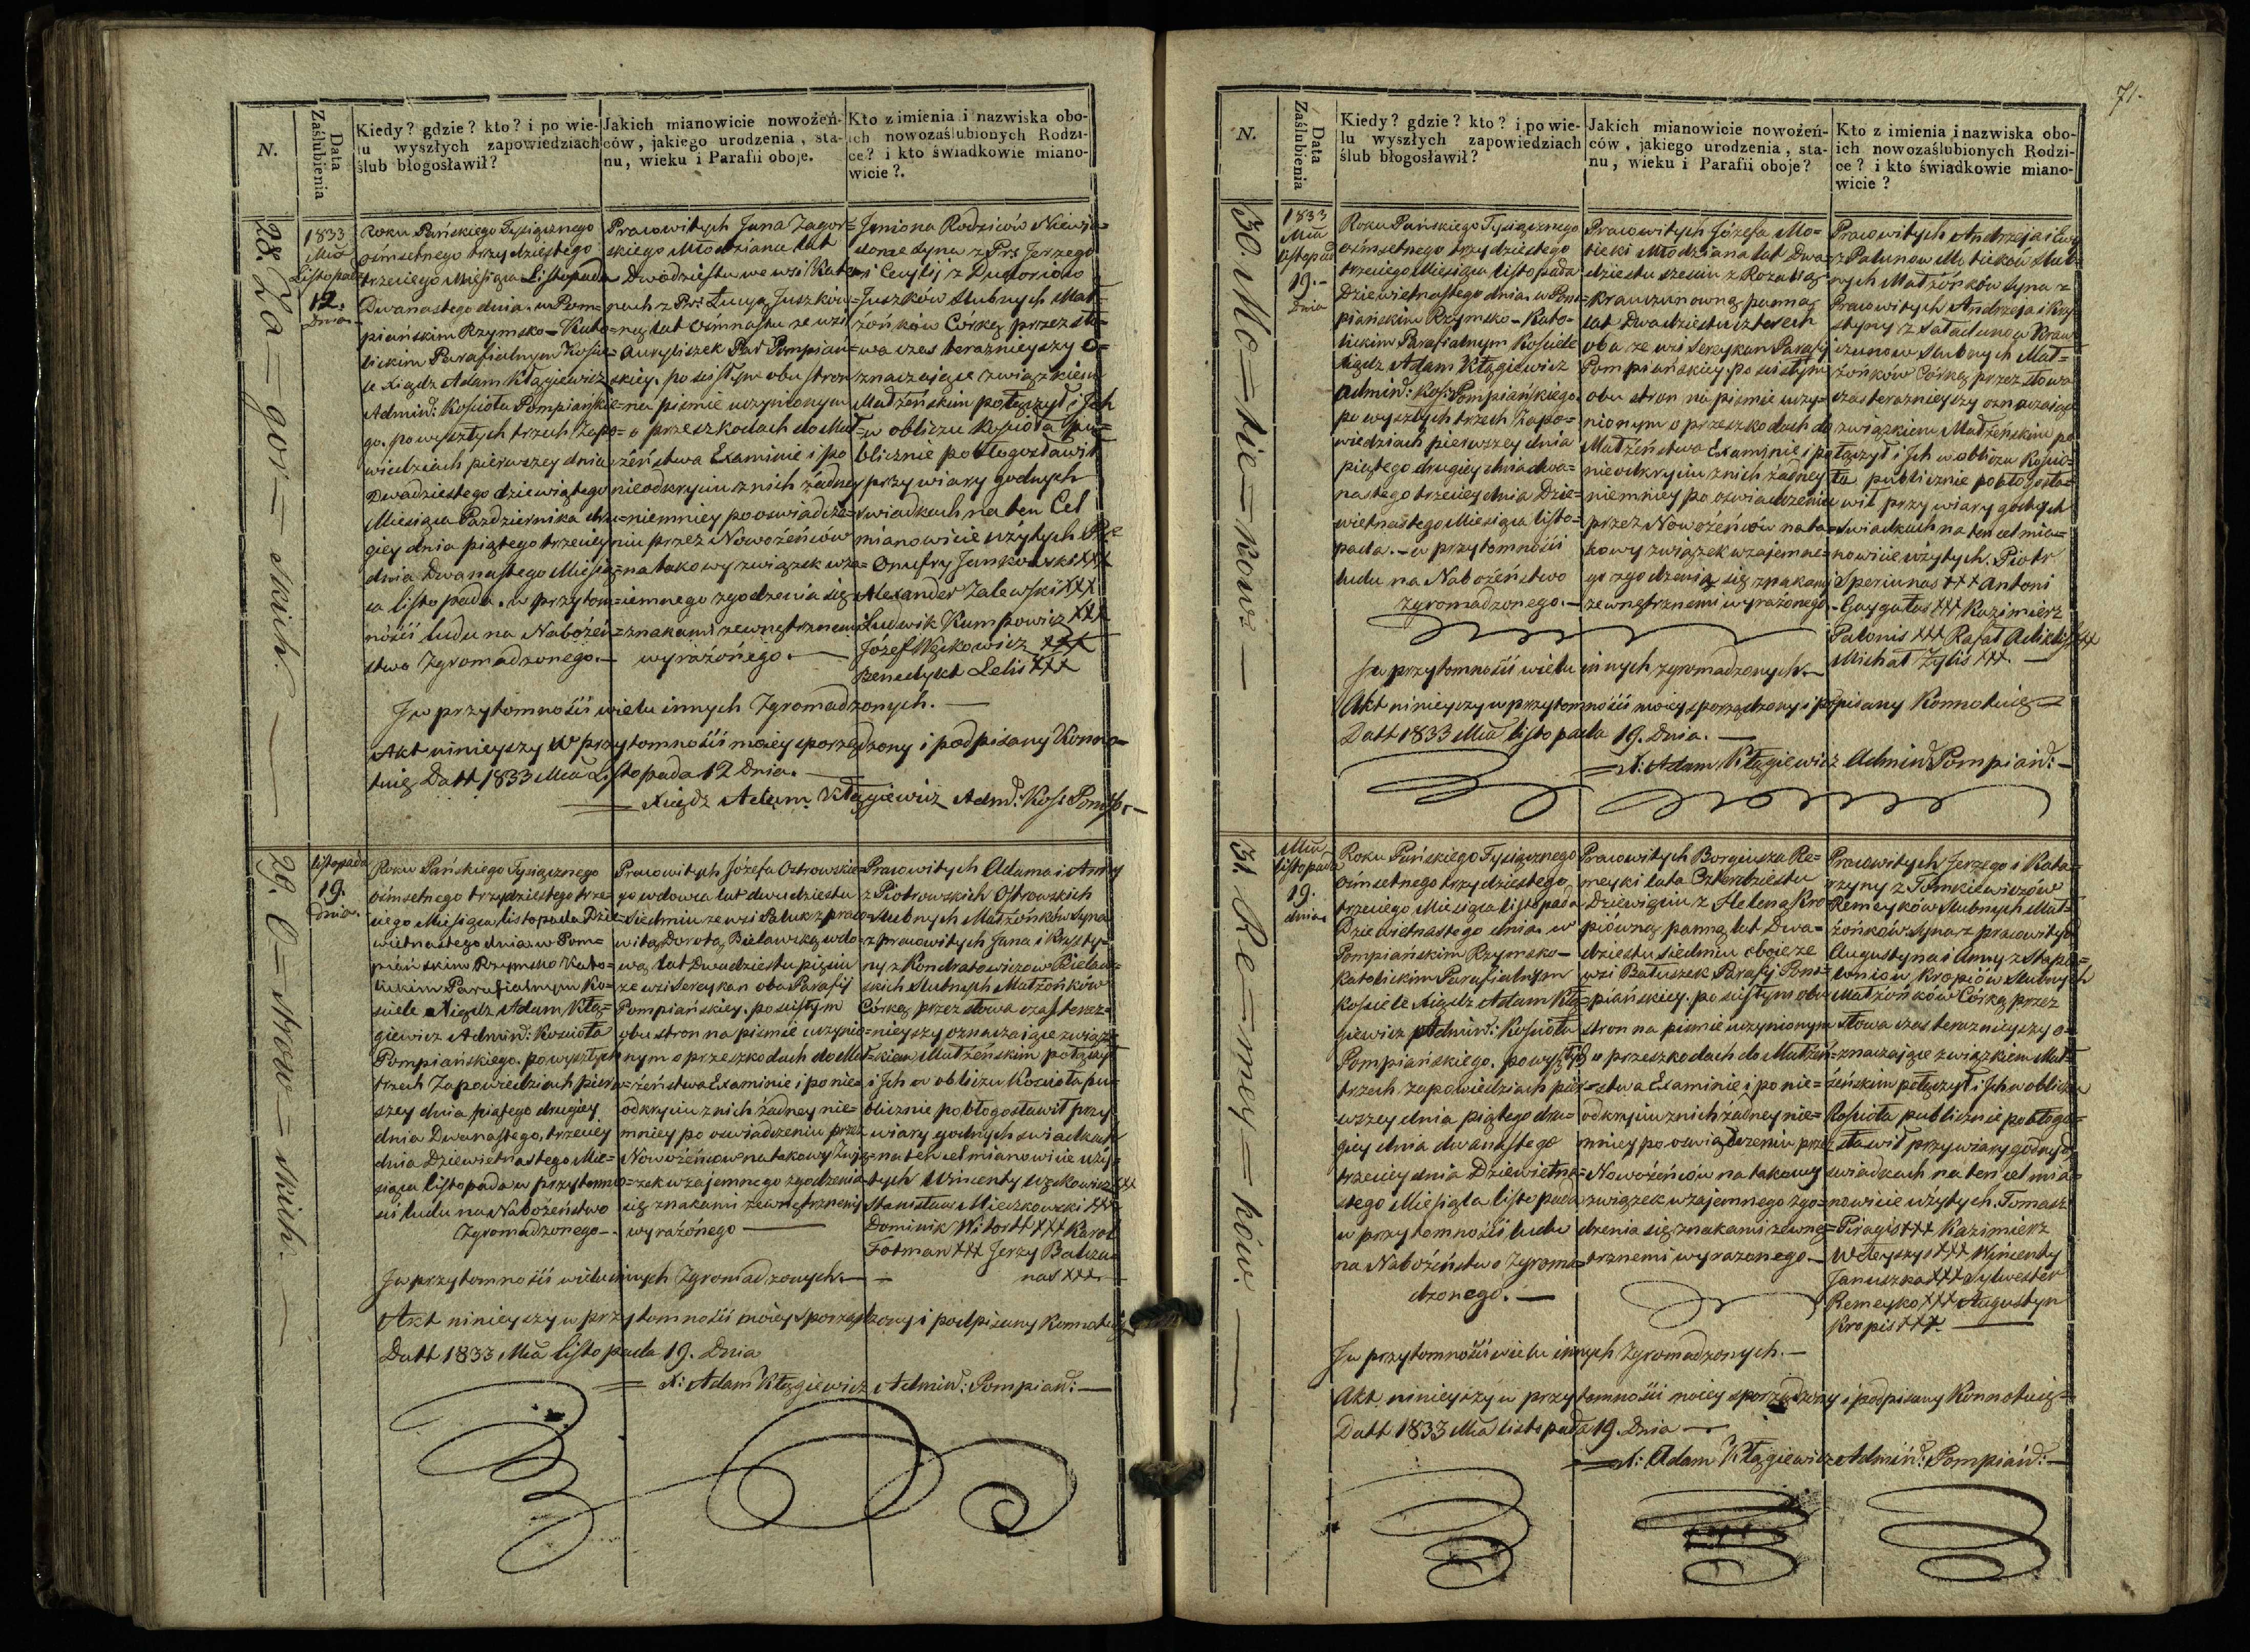 N.
Data
Zaślubienia
Kiedy? gdzie? kto? i po wie-
lu wyszłych zapowiedziach
ślub błogosławił?
Jakich mianowicie nowożeń-
ców, jakiego urodzenia, sta-
nu, wieku i Parafii oboje.
Kto z imienia i nazwiska obo-
ich nowozaślubionych Rodzi-
ce? i kto świadkowie miano-
wicie?.
28. Za=gor=skich.—
1833
Mca
Listopada
12.
Dnia
Roku Pańskiego Tysiącznego
ośmsetnego trzydziestego
trzeciego Miesiąca Listopada
Dwanastego dnia. w Pom=
piańskim Rzymsko-Kato=
lickim Parafialnym Kościele
Xiądz Adam Kłągiewicz
Admin: Kościoła Pompiańskie=
go. po wyszłych trzech Zapo=
wiedziach pierwszey dnia
Dwadziestego dziewiątego
Miesiąca Pazdziernika dru=
giey dnia piątego trzeciey
dnia Dwanastego Miesią=
ca listopada. w przytom=
ności ludu na Nabożeń=
stwo Zgromadzonego.—
Pracowitych Jana Zagor=
skiego Młodziana lat
Dwódziestu we wsi
z Pr: Łucyą Juszków=
ną lat Ośmnastu ze wsi
Par Pompiań=
skiey. po ścisłym obu stron
na piśmie uczynionym
o przeszkodach do Mał=
żeństwa Examinie i po
nieodkryciu z nich żadney
niemniey po oswiadcze=
niu przez Nowożeńców
na takowy związek wza=
iemnego zgodzenia się
znakami zewnętrznemi
wyrażónego.—
Jmiona Rodziców Niewia=
dome syna z Pr: Jerzego
i Cecylij z
Juszków Slubnych Mał=
żónków Córkę przez sło=
wa czas teraznieyszy o=
znaczaiące związkiem
Małżeńskim połączył i Jch
w obliczu Kościoła Pu=
blicznie pobłogosławił
przy wiary godnych
swiadkach na ten Cel
mianowicie użytych
Onufry Jankowski XXX
Alexander Zalewski XXX
Ludwik Kumpowicz XXX
Józef Węckowicz XXX
Benedykt Lelis XXX
J w przytomności wielu innych Zgromadzonych.—
Akt ninieyszy w przytomności moiey sporządzony i podpisany Konno=
tuię Datt 1833 Mca Listopada 12 Dnia.—
Xiądz Adam Kłągiewicz Adm: Kos: Pomp:—
29. O=strow=skich.—
listopada
19.
Dnia.
Roku Pańskiego Tysiącznego
ośmsetnego trzydziestego trze=
ciego Miesiąca listopada Dzie=
wietnastego dnia. w Pom=
piańskim Rzymsko Kato=
lickim Parafialnym Ko=
ściele Xiądz Adam Kłą=
giewicz Admin: Kościoła
Pompiańskiego. po wyszłych
trzech Zapowiedziach pierw=
szey dnia piątego drugiey
dnia Dwanastego, trzeciey
dnia Dziewietnastego Mie=
siąca listopada w przytomno=
ści ludu na Nabożeństwo
Zgromadzonego—.
Pracowitych Józefa Ostrowskie=
go wdowca lat dwudziestu
Siedmiu ze wsi z praco=
witą Dorotą Bielawską wdo=
wą lat Dwudziestu pięciu
ze wsi Sereykan oba Parafij
Pompiańskiey. po ścisłym
obu stron na pismie uczynio=
nym o przeszkodach do Mał=
żeństwa Examinie i po nie=
odkryciu z nich żadney nie=
mniey po oswiadczeniu przez
Nowożeńców na takowy Zwią=
zek wzajemnego zgodzenia
się znakami zewnętrznemi
wyrażónego—
Pracowitych Adama i Anny
z Piotrowskich Ostrowskich
Slubnych Małżónków Syna
z pracowitych Jana i Krysty=
ny z Kondratowiczow Bielaw=
skich Slubnych Małżónków
Córkę przez słowa czas teraz=
nieyszy oznaczaiące związ=
kiem Małżeńskim połączył
i Jch w obliczu Kościoła pu=
blicznie pobłogosławił przy
wiary godnych swiadkach
na ten cel mianowicie uży=
tych Wincenty Węckowicz XXX
Stanisław Mieczkowski XXX
Dominik XXX Karol
Fotman XXX Jerzy Balczu=
nas XXX.—
J w przytomności wielu innych Zgromadzonych.—
Akt ninieyszy w przytomności moiey Sporządzony i podpisany Konnotuię
Datt 1833 Mca listopada 19. Dnia
X: Adam Kłągiewicz Admin: Pompian:—
71.
N.
Data
Zaślubienia
Kiedy? gdzie? kto? i po wie-
lu wyszłych zapowiedziach
ślub błogosławił?
Jakich mianowicie nowożeń-
ców, jakiego urodzenia, sta-
nu, wieku i Parafii oboje?
Kto z imienia i nazwiska obo-
ich nowozaślubionych Rodzi-
ce? i kto świadkowie miano-
wicie?
30. Mo=tie=kow—
1833
Mca
listopada
19.—
Dnia
Roku Pańskiego Tysiącznego
ośmsetnego trzydziestego
trzeciego Miesiąca listopada
Dziewietnastego dnia. w Pom=
piańskim Rzymsko-Kato=
lickim Parafialnym Kosciele
Xiądz Adam Kłągiewicz
Admin: Kos: Pompiańskiego
po wyszłych trzech Zapo=
wiedziach pierwszey dnia
piątego drugiey dnia dwa=
nastego trzeciey dnia Dzie=
wietnastego Miesiąca listo=
pada.—w przytomności
ludu na Nabożeństwo
zgromadzonego.—
Pracowitych Józefa Mo=
tieki Młodziana lat Dwa=
dziestu szesciu z Rozalią
Krauczunowną panną
lat Dwadziestu czterech
oba ze wsi Sereykan Parafij
Pompiańskiey. po scisłym
obu stron na pismie uczy=
nionym o przeszkodach do
Małżeństwa Examinie i po
nieodkryciu z nich żadney
niemniey po oswiadczeniu
przez Nowożeńców na ta=
kowy związek wzajemne=
go zgodzenia się znakami
zewnętrznemi wyrażonego.—
Pracowitych Andrzeja i Ewy
z Palunow Motiekow Slub=
nych Małżónków Syna z
Pracowitych Andrzeja i Kry=
styny z Kraw=
czunow Slubnych Mał=
żonków Córkę przez słowa
czas teraznieyszy oznaczaiące
związkiem Małżeńskim po
łączył i Jch w obliczu Koscio=
ła publicznie pobłogosła=
wił przy wiary godnych
Swiadkach na ten cel mia=
nowicie użytych. Piotr
Speziunas XXX Antoni
Gaygałas XXX Kazimierz
Palonis XXX Rafał XXX
Michał Zylis XXX.—
J w przytomności wielu innych zgromadzonych.—
Akt ninieyszy w przytomności moiey sporządzony i podpisany Konnotuię=
Datt 1833 Mca listopada 19. Dnia.—
X: Adam Kłągiewicz Admin Pompian:—
31. Re=mey=ków.—
Mca
listopada
19.
dnia
Roku Pańskiego Tysiącznego
Ośmsetnego trzydziestego
trzeciego Miesiąca listopada
Dziewietnastego dnia. w
Pompiańskim Rzymsko-
Katolickim Parafialnym
Kosciele Xiądz Adam Kłą=
giewicz Admin: Kościoła
Pompiańskiego. po wyszłych
trzech zapowiedziach pier=
wszey dnia piątego dru=
giey dnia dwanastego
trzeciey dnia Dziewietna=
stego Miesiąca listopada
w przytomności ludu
na Nabożeństwo Zgroma=
dzonego.—
Pracowitych Re=
meyki lata Czterdziestu
Dziewięciu z Heleną Kro=
piówną panną lat Dwa=
dziestu siedmiu oboje ze
wsi Batuszek Parafij Pom=
piańskiey. po ścisłym obu
stron na pismie uczynionym
o przeszkodach do Małżeń=
stwa Examinie i po nie=
odkryciu z nich żadney nie=
mniey po oswiadczeniu przez
Nowożeńców na takowy
związek wzajemnego zgo=
dzenia się znakami zewnę=
trznemi wyrazonego.—
Pracowitych Jerzego i Kata=
rzyny z Tomkiewiczów
Remeyków Slubnych Mał=
żónków Syna z pracowitych
Augustyna i Anny z
Kropiów Slubnych
Małżónków Córkę przez
słowa czas teraznieyszy o=
znaczające związkiem Mał=
żeńskim połączył i Jch w obliczu
Kościoła publicznie pobłogo=
sławił przy wiary godnych
swiadkach na ten cel mia=
nowicie użytych. Tomasz
Piragis XXX Kazimierz
XXX Wincenty
Januszka XXX Sylwester
Remeyko XXX Augustyn
Kropis XXX.—
J w przytomności wielu innych Zgromadzonych.—
Akt ninieyszy w przytomności moiey sporządzony i podpisany Konnotuię=
Datt 1833 Mca listopada 19. Dnia—
X: Adam Kłągiewicz Admin: Pompian:—